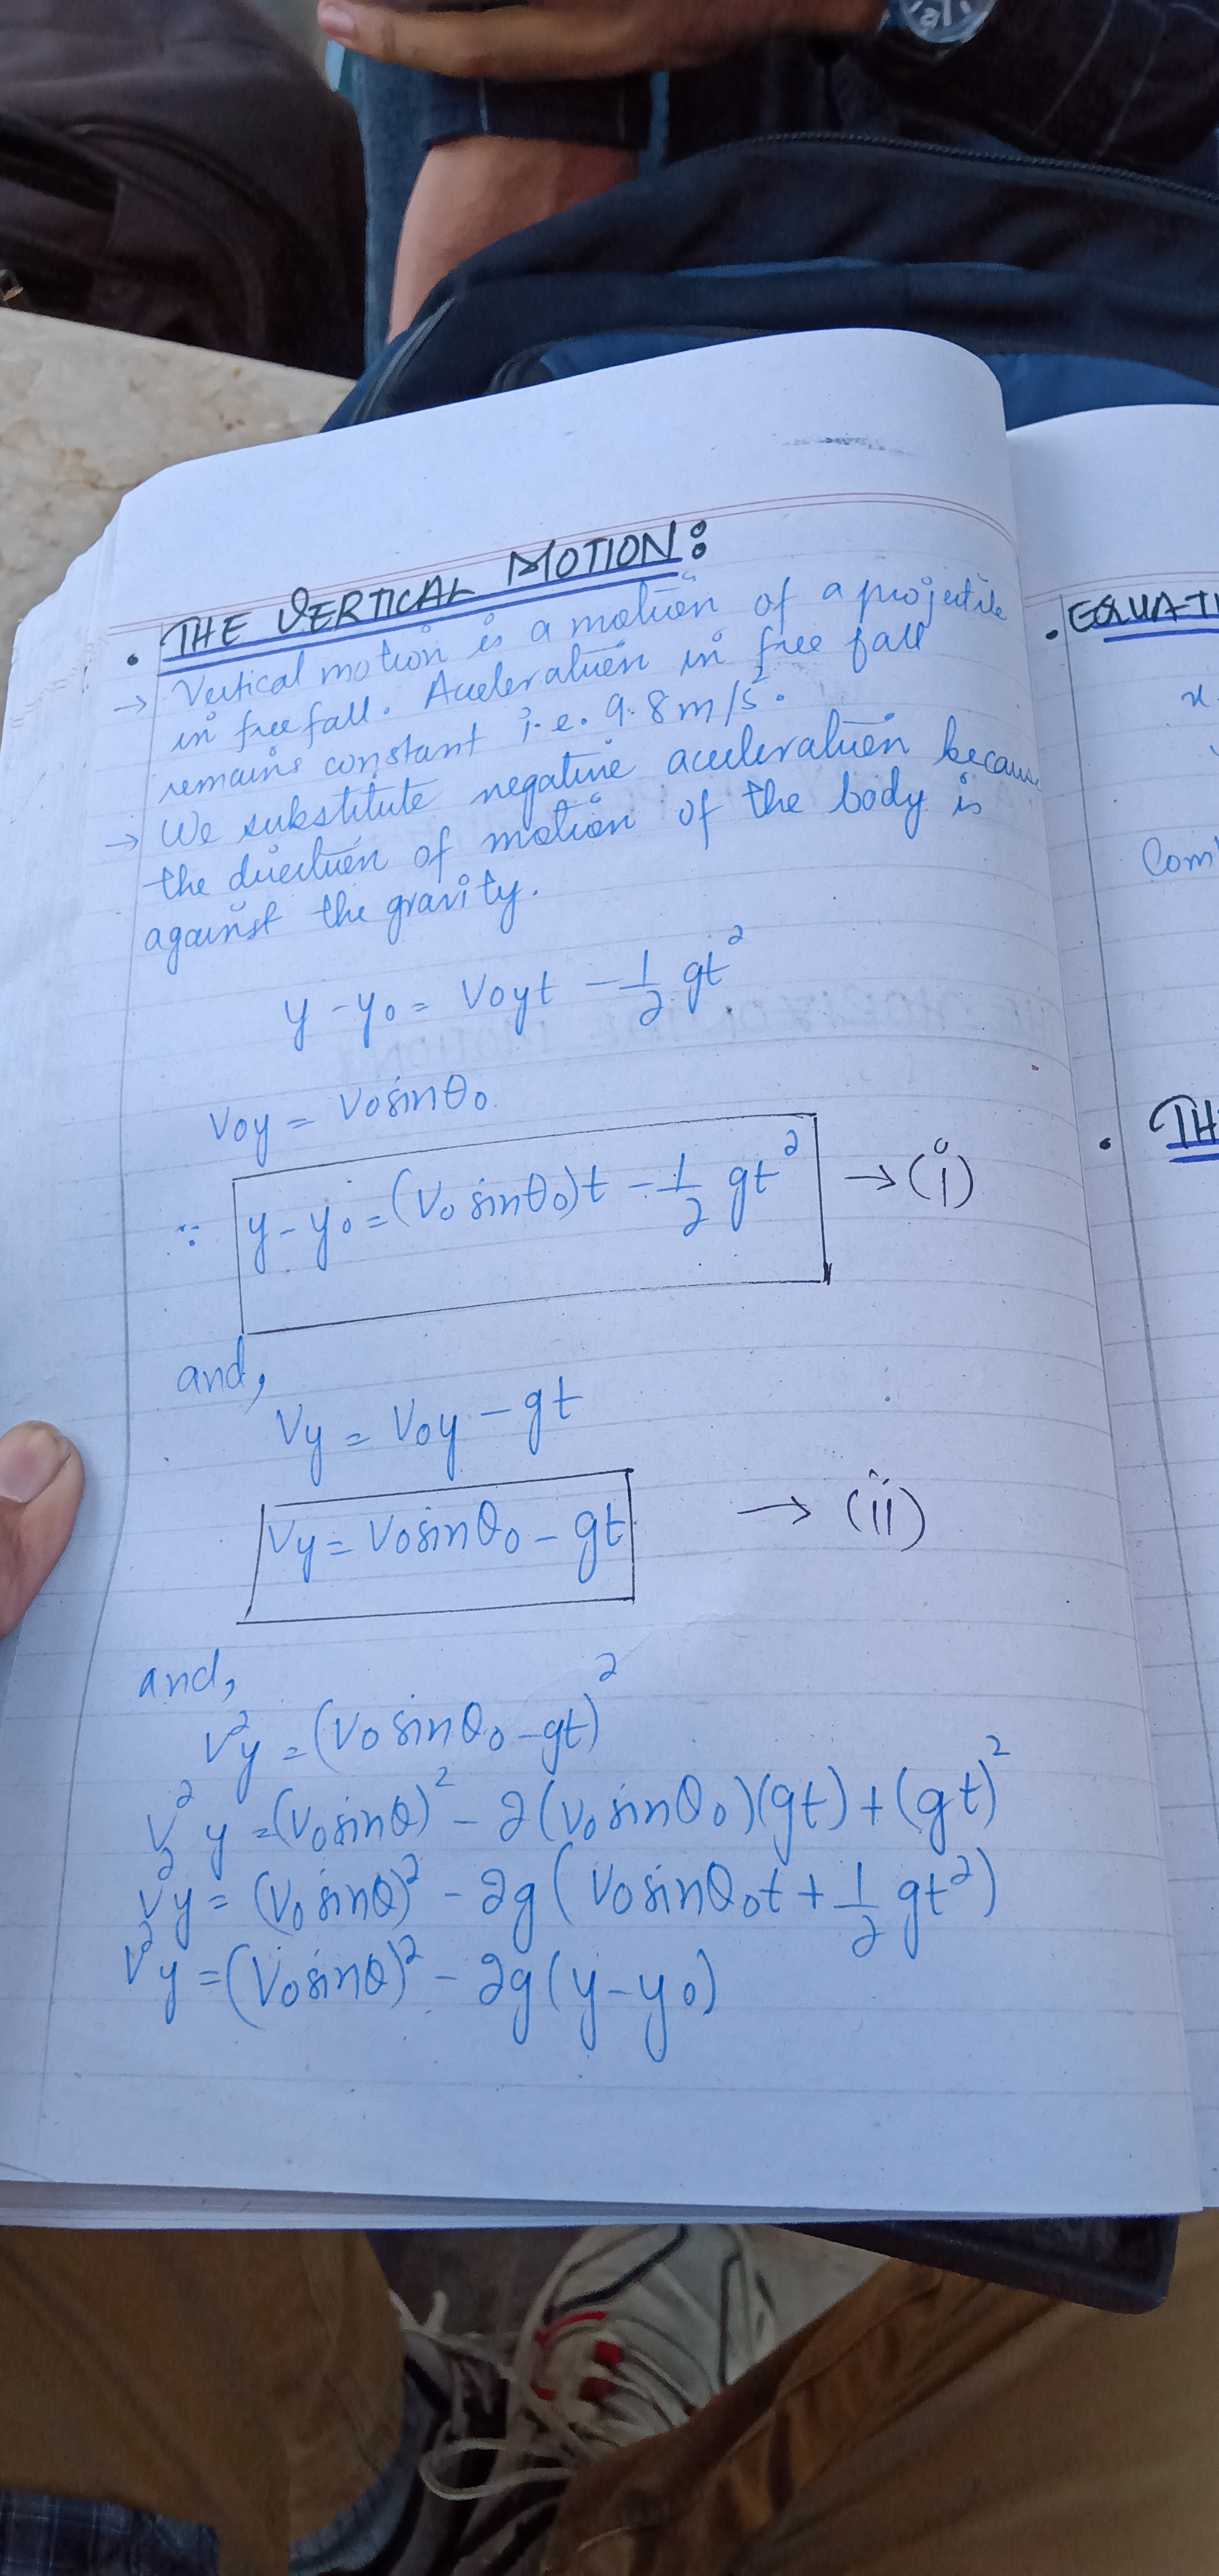 • THE VERTICAL MOTION:
→ Vertical motion is a motion of a projectile
in free fall. Acceleration in free fall
remains constant i.e. 9.8 m/s².
→ We substitute negative acceleration because
the direction of motion of the body is
against the gravity.
y - y₀ = v₀yt - 1/2 gt²
v₀y = v₀sinθ₀
∵ y - y₀ = (v₀ sinθ₀)t - 1/2 gt² → (i)
and,
vy = v₀y - gt
vy = v₀sinθ₀ - gt → (ii)
and,
v²y = (v₀ sinθ₀ - gt)²
v²y = (v₀sinθ)² - 2(v₀ sinθ₀)(gt) + (gt)²
v²y = (v₀ sinθ)² - 2g(v₀sinθ₀t + 1/2 gt²)
v²y = (v₀sinθ)² - 2g(y - y₀)
• EQUATI
x
Com
• TH